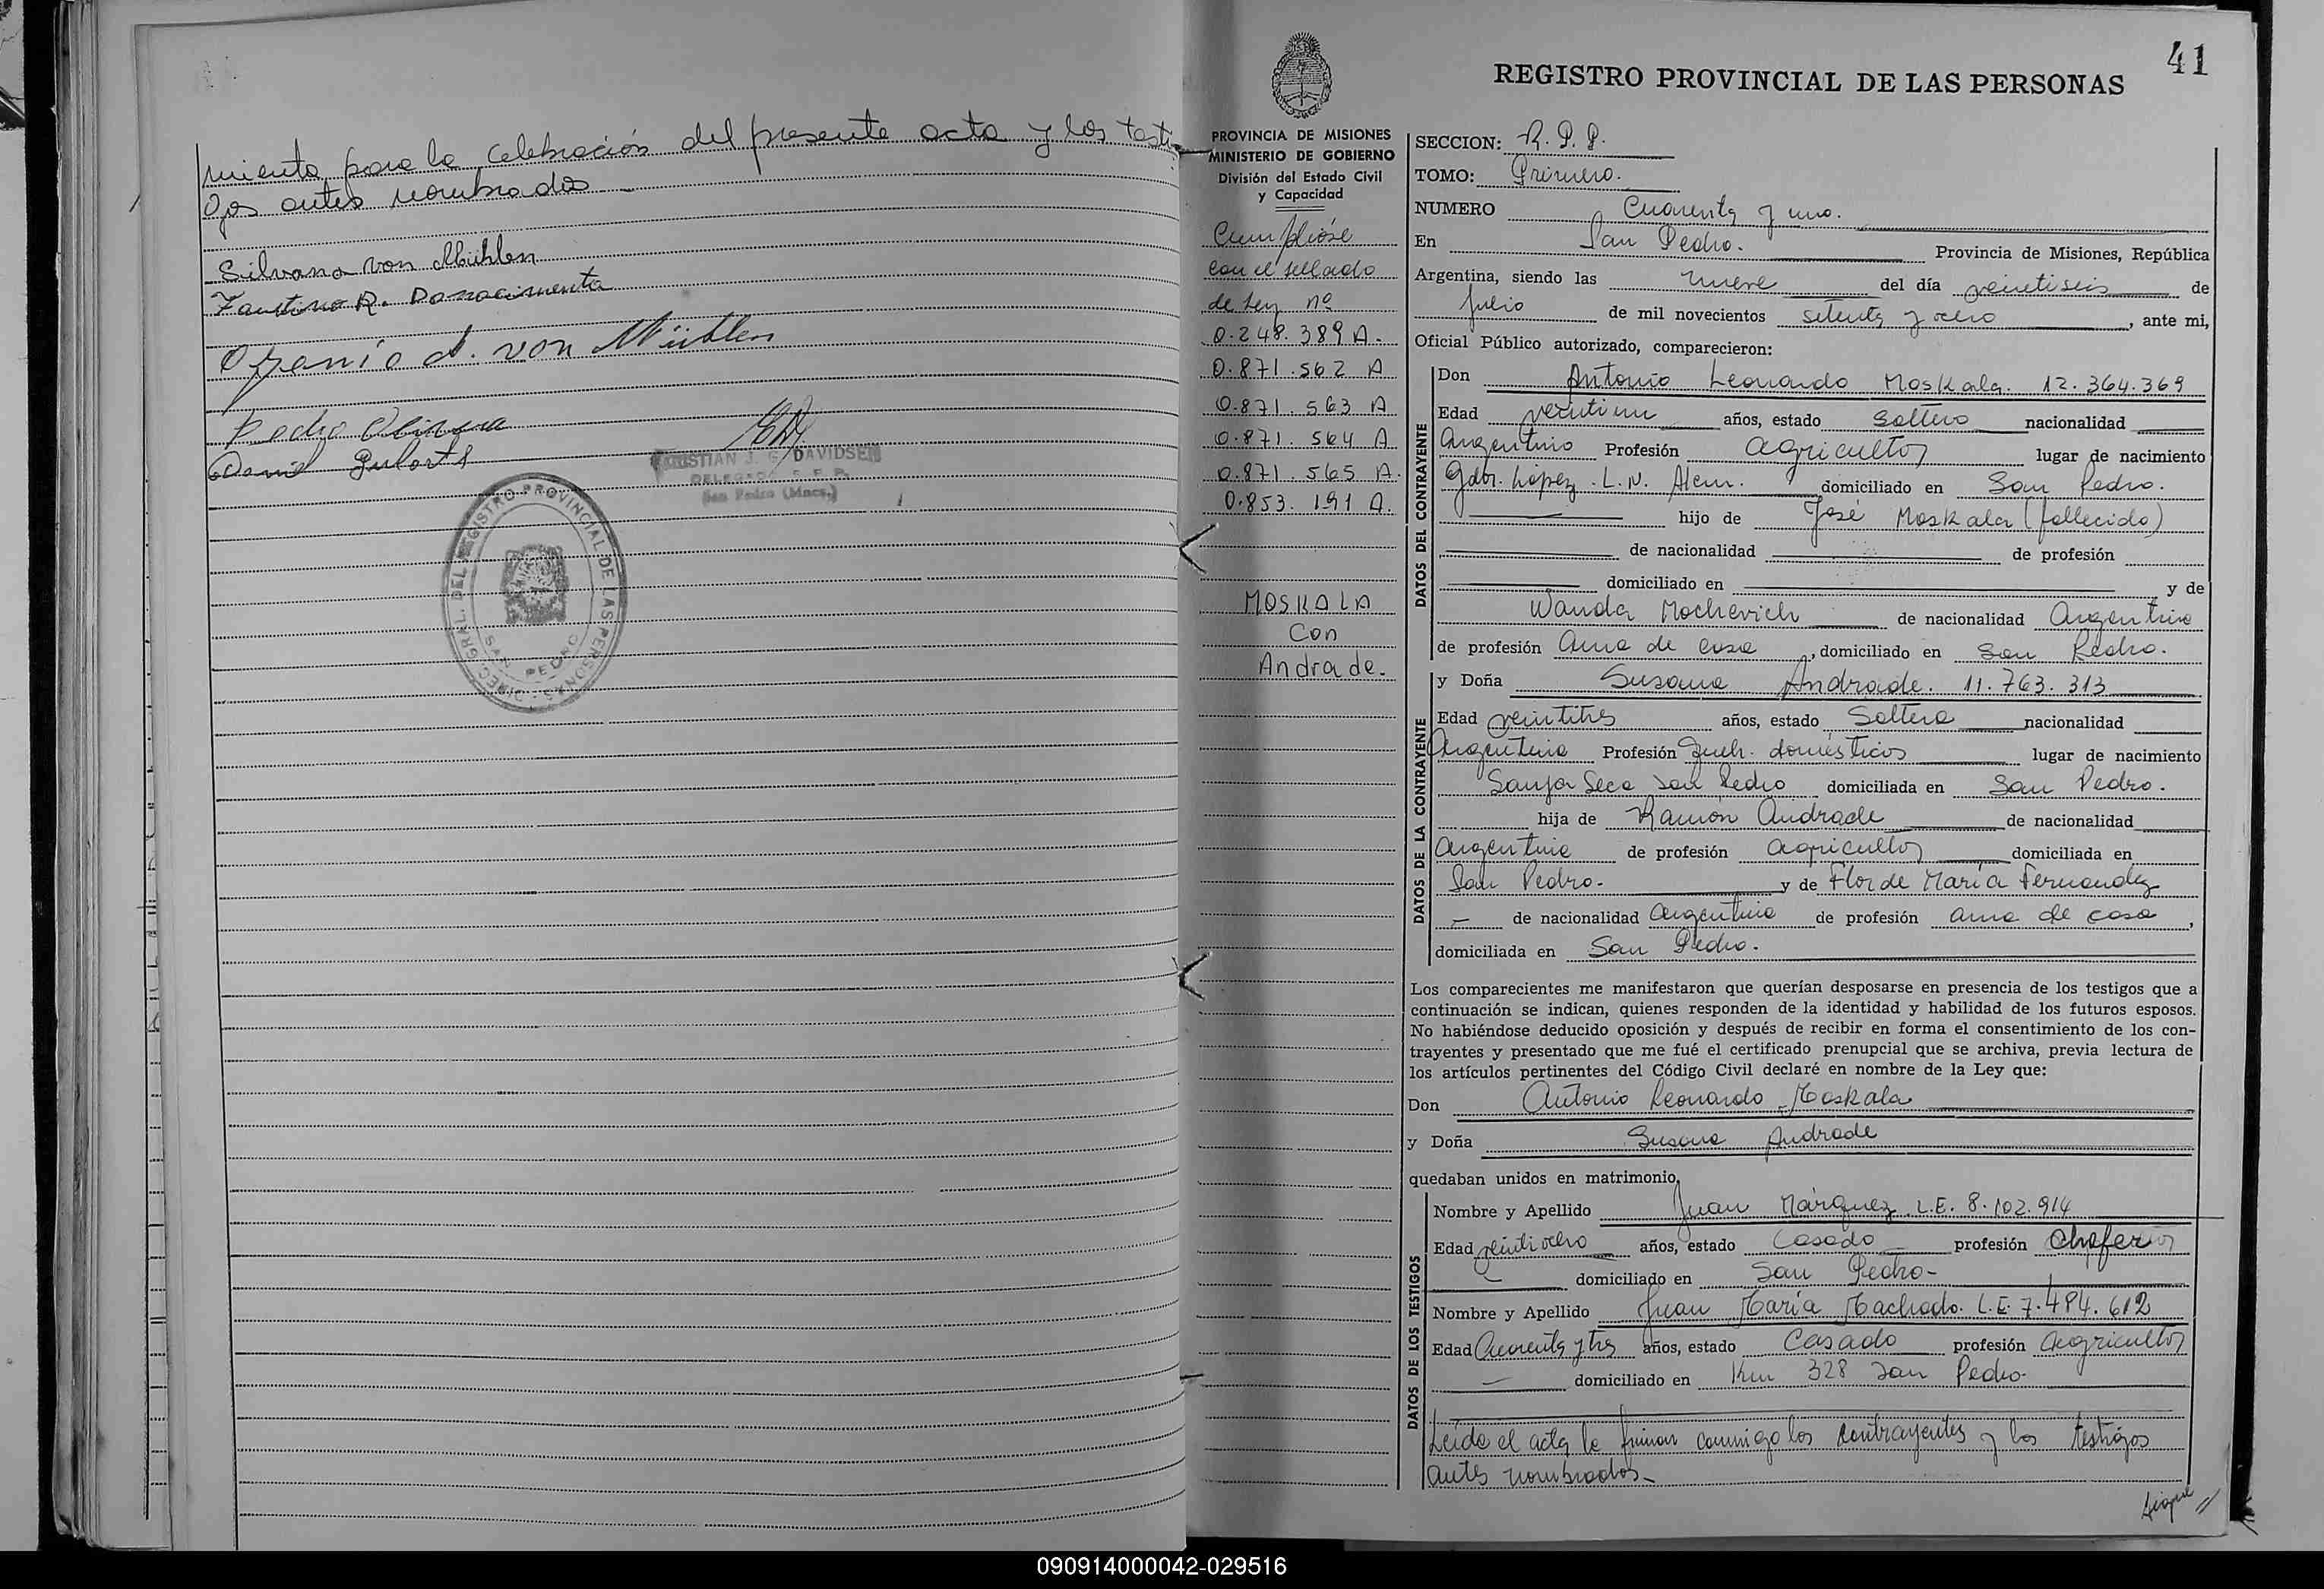 miento para la celebración del presente acta y los testi
gos antes nombrados
Silvana von Mühlen
Faustino R. Donacimento
von Mühlen
Pedro Olivera
KRISTIAN J. G. DAVIDSEN
DELEGADO R. P. P.
San Pedro (Mnes.)
DIREC. GRAL. DEL REGISTRO PROVINCIAL DE LAS PERSONAS
SAN PEDRO
41
REGISTRO PROVINCIAL DE LAS PERSONAS
PROVINCIA DE MISIONES
MINISTERIO DE GOBIERNO
División del Estado Civil
y Capacidad
Cumplióse
con el sellado
de Ley nº
0.248.389 A.
0.871.562 A
0.871.563 A
0.871.564 A
0.871.565 A.
0.853.191 A.
MOSKALA
Con
Andrade.
SECCION: R. P. P.
TOMO: Primero.
NUMERO Cuarenta y uno.
En San Pedro. Provincia de Misiones, República
Argentina, siendo las nueve del día veintiseis de
Julio de mil novecientos setenta y ocho, ante mi,
Oficial Público autorizado, comparecieron:
DATOS DEL CONTRAYENTE
Don Antonio Leonardo Moskala. 12.364.369
Edad veintiun años, estado soltero nacionalidad
Argentino Profesión agricultor lugar de nacimiento
Gdor. López. L.N. Alem. domiciliado en San Pedro.
hijo de José Moskala (fallecido)
de nacionalidad de profesión
domiciliado en y de
Wanda Mochevich de nacionalidad Argentina
de profesión Ama de casa, domiciliado en San Pedro.
DATOS DE LA CONTRAYENTE
y Doña Susana Andrade. 11.763.313
Edad veintitres años, estado Soltera nacionalidad
Argentina Profesión Queh. domésticos lugar de nacimiento
Sanja Seca San Pedro domiciliada en San Pedro.
hija de Ramón Andrade de nacionalidad
argentina de profesión agricultor domiciliada en
San Pedro. y de Flor de María Fernandez
de nacionalidad argentina de profesión ama de casa,
domiciliada en San Pedro.
Los comparecientes me manifestaron que querían desposarse en presencia de los testigos que a
continuación se indican, quienes responden de la identidad y habilidad de los futuros esposos.
No habiéndose deducido oposición y después de recibir en forma el consentimiento de los con-
trayentes y presentado que me fué el certificado prenupcial que se archiva, previa lectura de
los artículos pertinentes del Código Civil declaré en nombre de la Ley que:
Don Antonio Leonardo Moskala
y Doña Susana Andrade
quedaban unidos en matrimonio,
DATOS DE LOS TESTIGOS
Nombre y Apellido Juan Márquez L.E. 8.102.914
Edad veintiocho años, estado Casado profesión Chofer
domiciliado en San Pedro-
Nombre y Apellido Juan María Machado. L.E. 7.484.612
Edad Cuarenta y tres años, estado Casado profesión agricultor
domiciliado en Km 328 San Pedro-
Leida el acta la firman conmigo los contrayentes y los testigos
antes nombrados.-
sigue
090914000042-029516